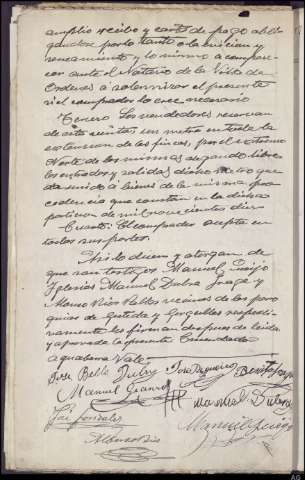 amplio recibo y carta de pago obli-
gandose por lo tanto a la eviccion y
saneamiento y lo mismo a compare-
cer ante el Notario de la Villa de
Ordenes a solemnizar el presente
si el comprador lo cree necesario
Tercero. Los vendedores reservan
de esta venta un metro en toda la
extension de las fincas, por el extremo
Norte de las mismas dejando libres
las entradas y salidas dicho metro que
da unido a bienes de la misma pro
cedencia que constan en la dicha
particion de mil novecientos diez
Cuarto: El comprador acepta en
todas sus partes.
Asi lo dicen y otorgan de
que son testigos Manuel Gueijo
Iglesias Manuel Dubra y
Alonso Rios vecinos de las parro
quias de Gesteda y Gorgullos respecti-
vamente los firman despues de leida
y aprovada la presente Enmendado
a quabena Vale.
Jose Bello Dubra Jose
Manuel
Manuel Dubra
Jose Gonzalez
Manuel Gueijo
Alonso Rios